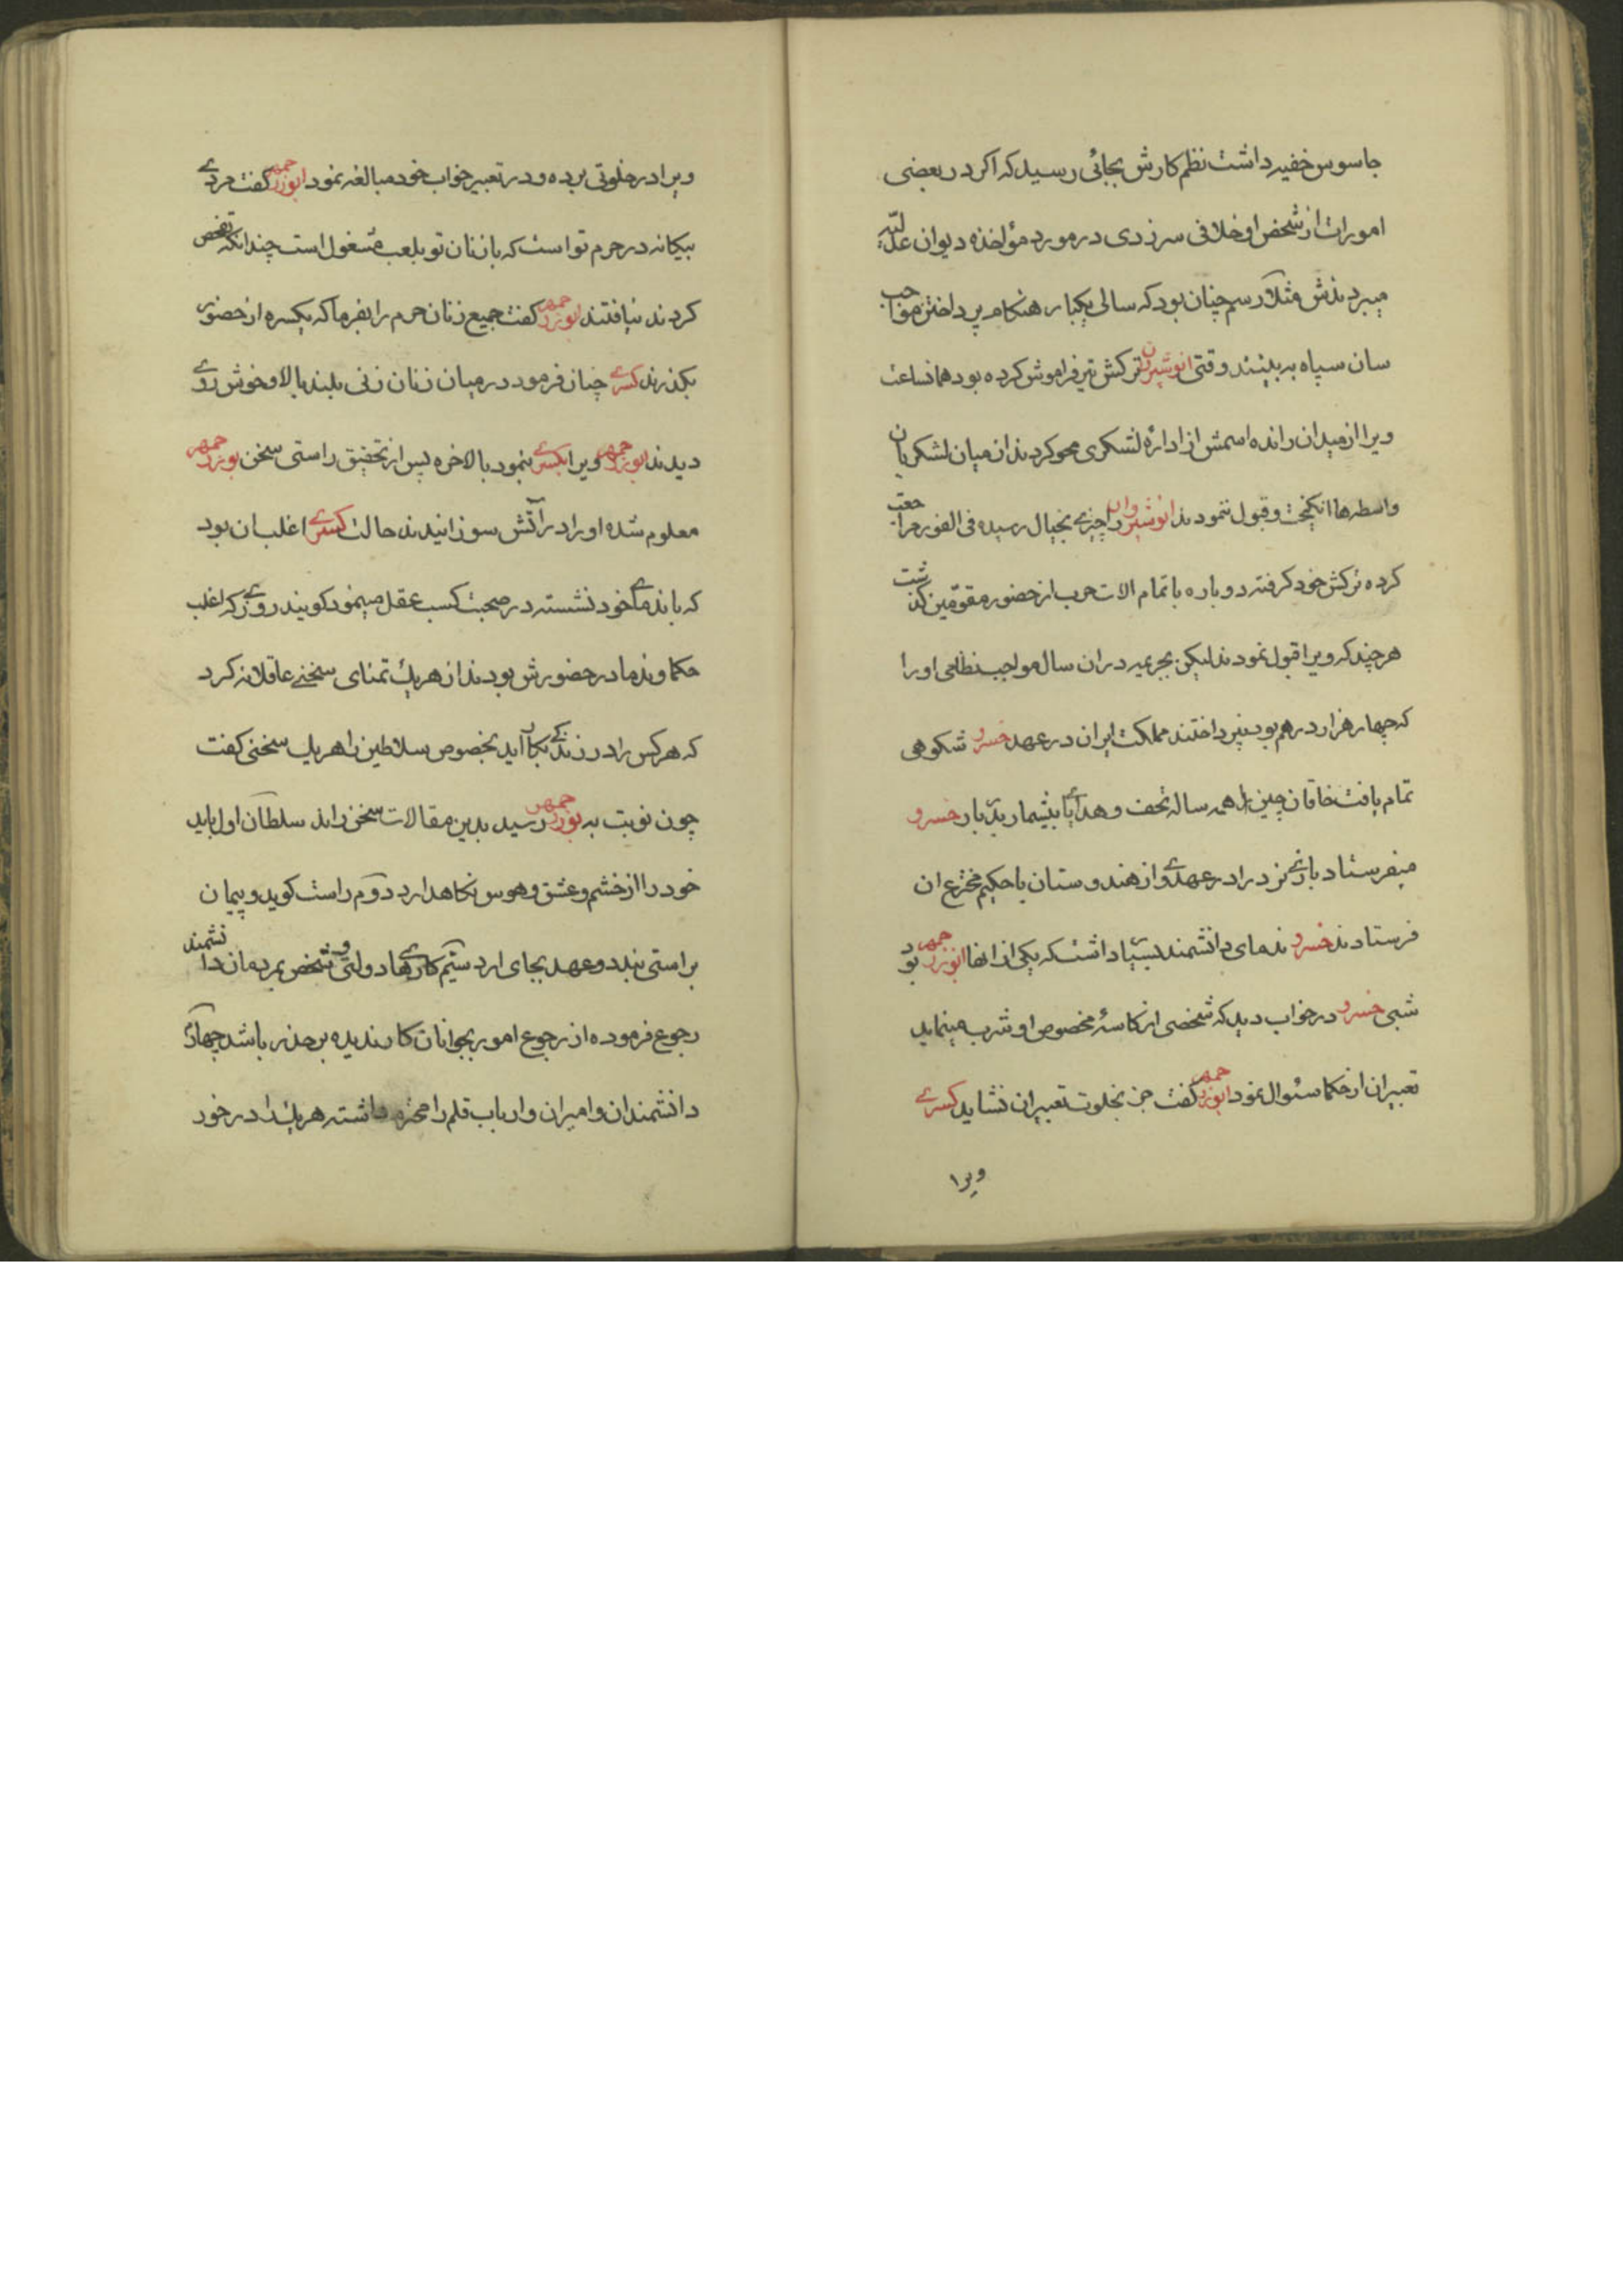 جاسوس خفیه داشت نظم کارش بجائی رسید که اکر در بعضی
امورات از شخص او خلافی سرزدی در مورد مؤاخذه دیوان عدلیّه
میبردندش مثلا رسم چنان بود که سالی یکبار هنکام پرداختن مواجب
سان سپاه به بینند وقتی انوشیروان ترکش تیر فراموش کرده بود همانساعت
ویرا از میدان رانده اسمش از ادارهٔ لشکری محو کردند از میان لشکریان
واسطه ها انکیخت و قبول ننمودند انوشیروان را چیزی بخیال رسیده فی الفور مراجعت
کرده ترکش خود کرفته دوباره با تمام الات حرب از حضور مقوّمین کذشت
هرچند که ویرا قبول نمودند لیکن بجریمه در ان سال مواجب نظامی او را
که چهار هزار درهم بود نپرداختند مملکت ایران در عهد خسرو شکوهی
تمام یافت خاقان چین همه ساله تحف و هدایای بیشمار بدربار خسرو
میفرستاد بازی نرد را در عهد وی از هندوستان با حکیم مخترع ان
فرستادند خسرو ندمای دانشمند بسیار داشت که یکی از انها ابوزرجمهر بود
شبی خسرو در خواب دید که شخصی از کاسهٔ مخصوص او شرب مینماید
تعبیر ان از حکما سئوال نمود ابوزرجمهر کفت جز بخلوت تعبیر ان نشاید کسری
ویرا
ویرا در خلوتی برده و در تعبیر خواب خود مبالغه نمود ابوزرجمهر کفت مردی
بیکانه در حرم تو است که با زنان تو بلعب مشغول است چندانکه تفحص
کردند نیافتند ابوزرجمهر کفت جمیع زنان حرم را بفرما که یکسره از حضور
بکذرند کسری چنان فرمود در میان زنان زنی بلند بالا و خوش روی
دیدند ابوزرجمهر ویرا بکسری بنمود بالاخره پس از تحقیق راستی سخن بوزرجمهر
معلوم شده او را در آتش سوزانیدند حالت کسری اغلب ان بود
که با ندمای خود نشسته در صحبت کسب عقل مینمود کویند روزی که اغلب
حکما و ندما در حضورش بودند از هریک تمنای سخنی عاقلانه کرد
که هرکس را در زندکی بکار آید بخصوص سلاطین را هریک سخنی کفت
چون نوبت به بوزرجمهر رسید بدین مقالات سخن راند سلطان اول باید
خود را از خشم و عشق و هوس نکاهدارد دوّم راست کوید و پیمان
براستی بندد و عهد بجای ارد سیّم کارهای دولتی و شخصی بمردمان دانشمند
رجوع فرموده از رجوع امور بجوانان کار ندیده بر حذر باشد چهارم
دانشمندان و امیران و ارباب قلم را محترم داشته هریک را در خور